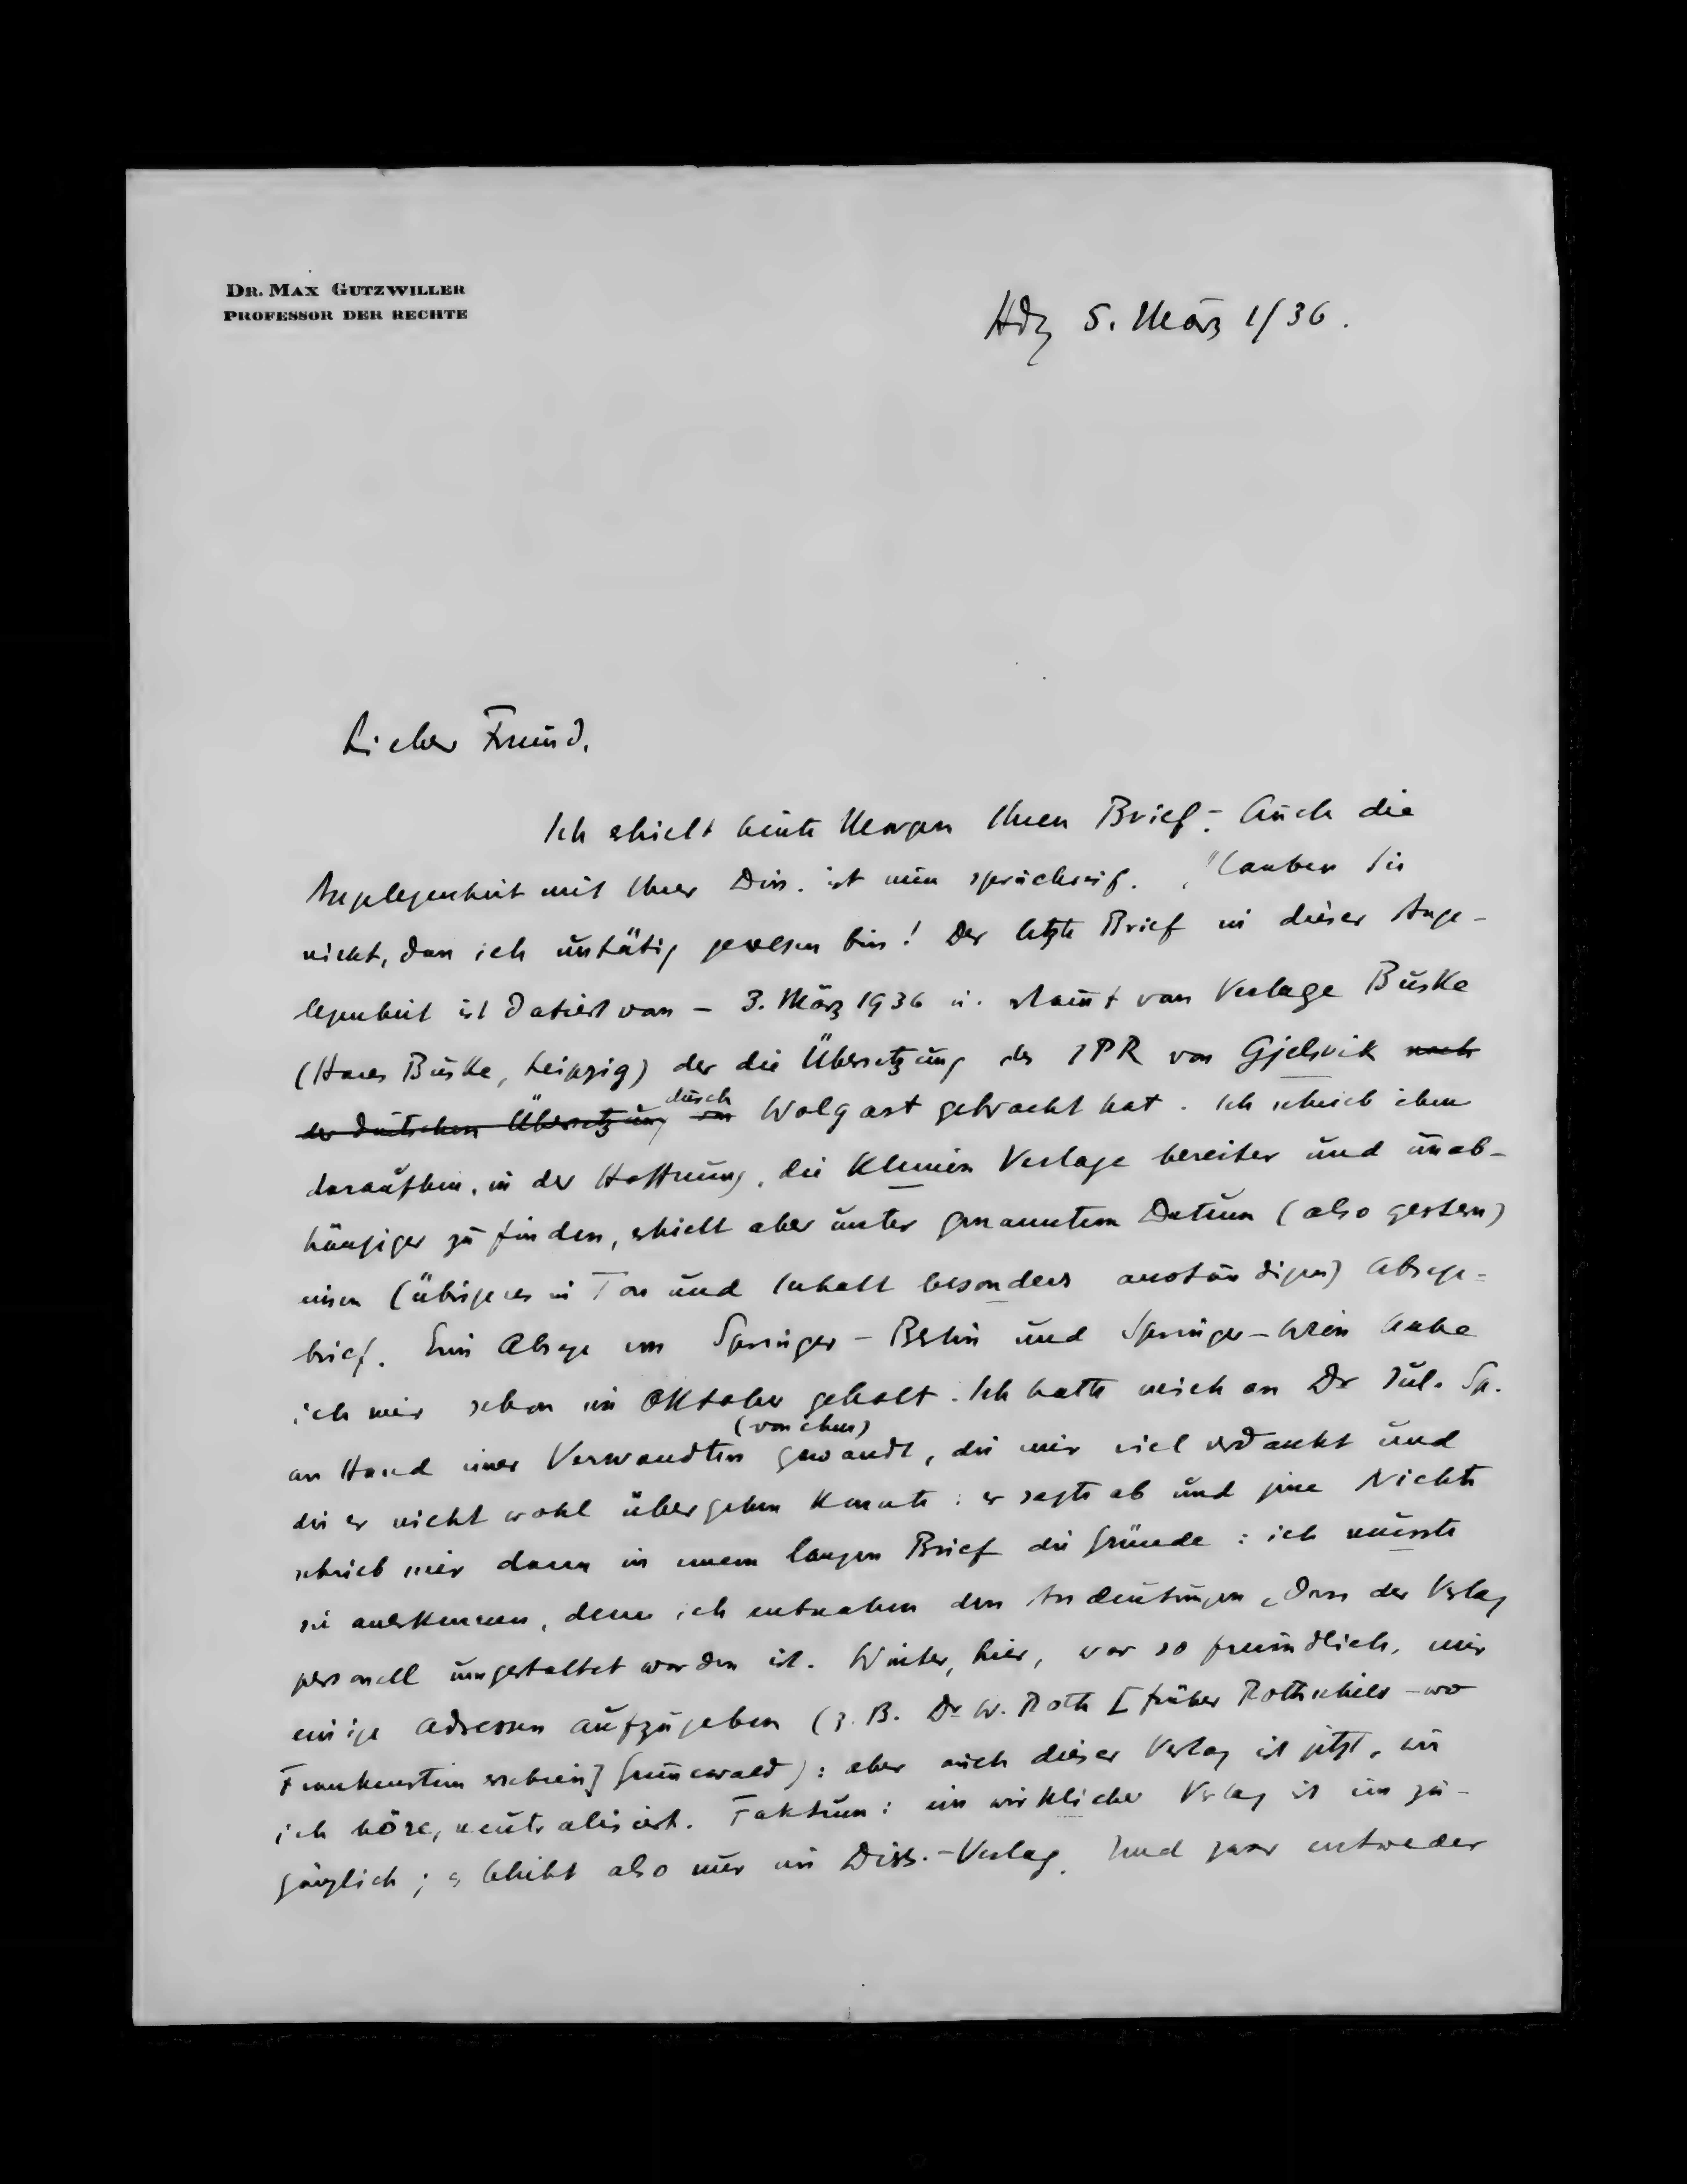 DR. MAX GUTZWILLER
PROFESSOR DER RECHTE
Hdg 5. März 1/36.
Lieber Freund.
Ich erhielt heute Morgen Ihren Brief. – Auch die
Angelegenheit mit Ihrer Diss. ist nun spruchreif. Glauben Sie
nicht, dass ich untätig gewesen bin! Der letzte Brief in dieser Ange-
legenheit ist datiert vom – 3. März 1936 u. stammt vom Verlage Buske
(Hans Buske, Leipzig) der die Übersetzung des IPR von Gjelsvik nach
der deutschen Übersetzung von durch Wolgast gebracht hat. Ich schrieb ihm
daraufhin, in der Hoffnung, die kleinen Verlage bereiter und unab-
hängiger zu finden, erhielt aber unter genanntem Datum (also gestern)
einen (übrigens in Ton und Inhalt besonders anständigen) Absage-
brief. Eine Absage von Springer – Berlin und Springer – Wien habe
ich mir schon im Oktober geholt. Ich hatte mich an Dr Jul. Sp.
an Hand einer Verwandten (von ihm) gewandt, die mir viel verdankt und
die er nicht wohl übergehen konnte: er sagte ab und jene Nichte
schrieb mir dann in einem langen Brief die Gründe: ich musste
sie anerkennen, denn ich entnahm den Andeutungen, dass der Verlag
personell umgestaltet worden ist. Winter, hier, war so freundlich, mir
einige Adressen aufzugeben (z. B. Dr W. Roth [früher Rothschild – wo
Frankenstein erschien] Grunewald): aber auch dieser Verlag ist jetzt, wie
ich höre, neutralisiert. Faktum: ein wirklicher Verlag ist unzu-
gänglich; es bleibt also nur ein Diss.-Verlag. Und zwar entweder